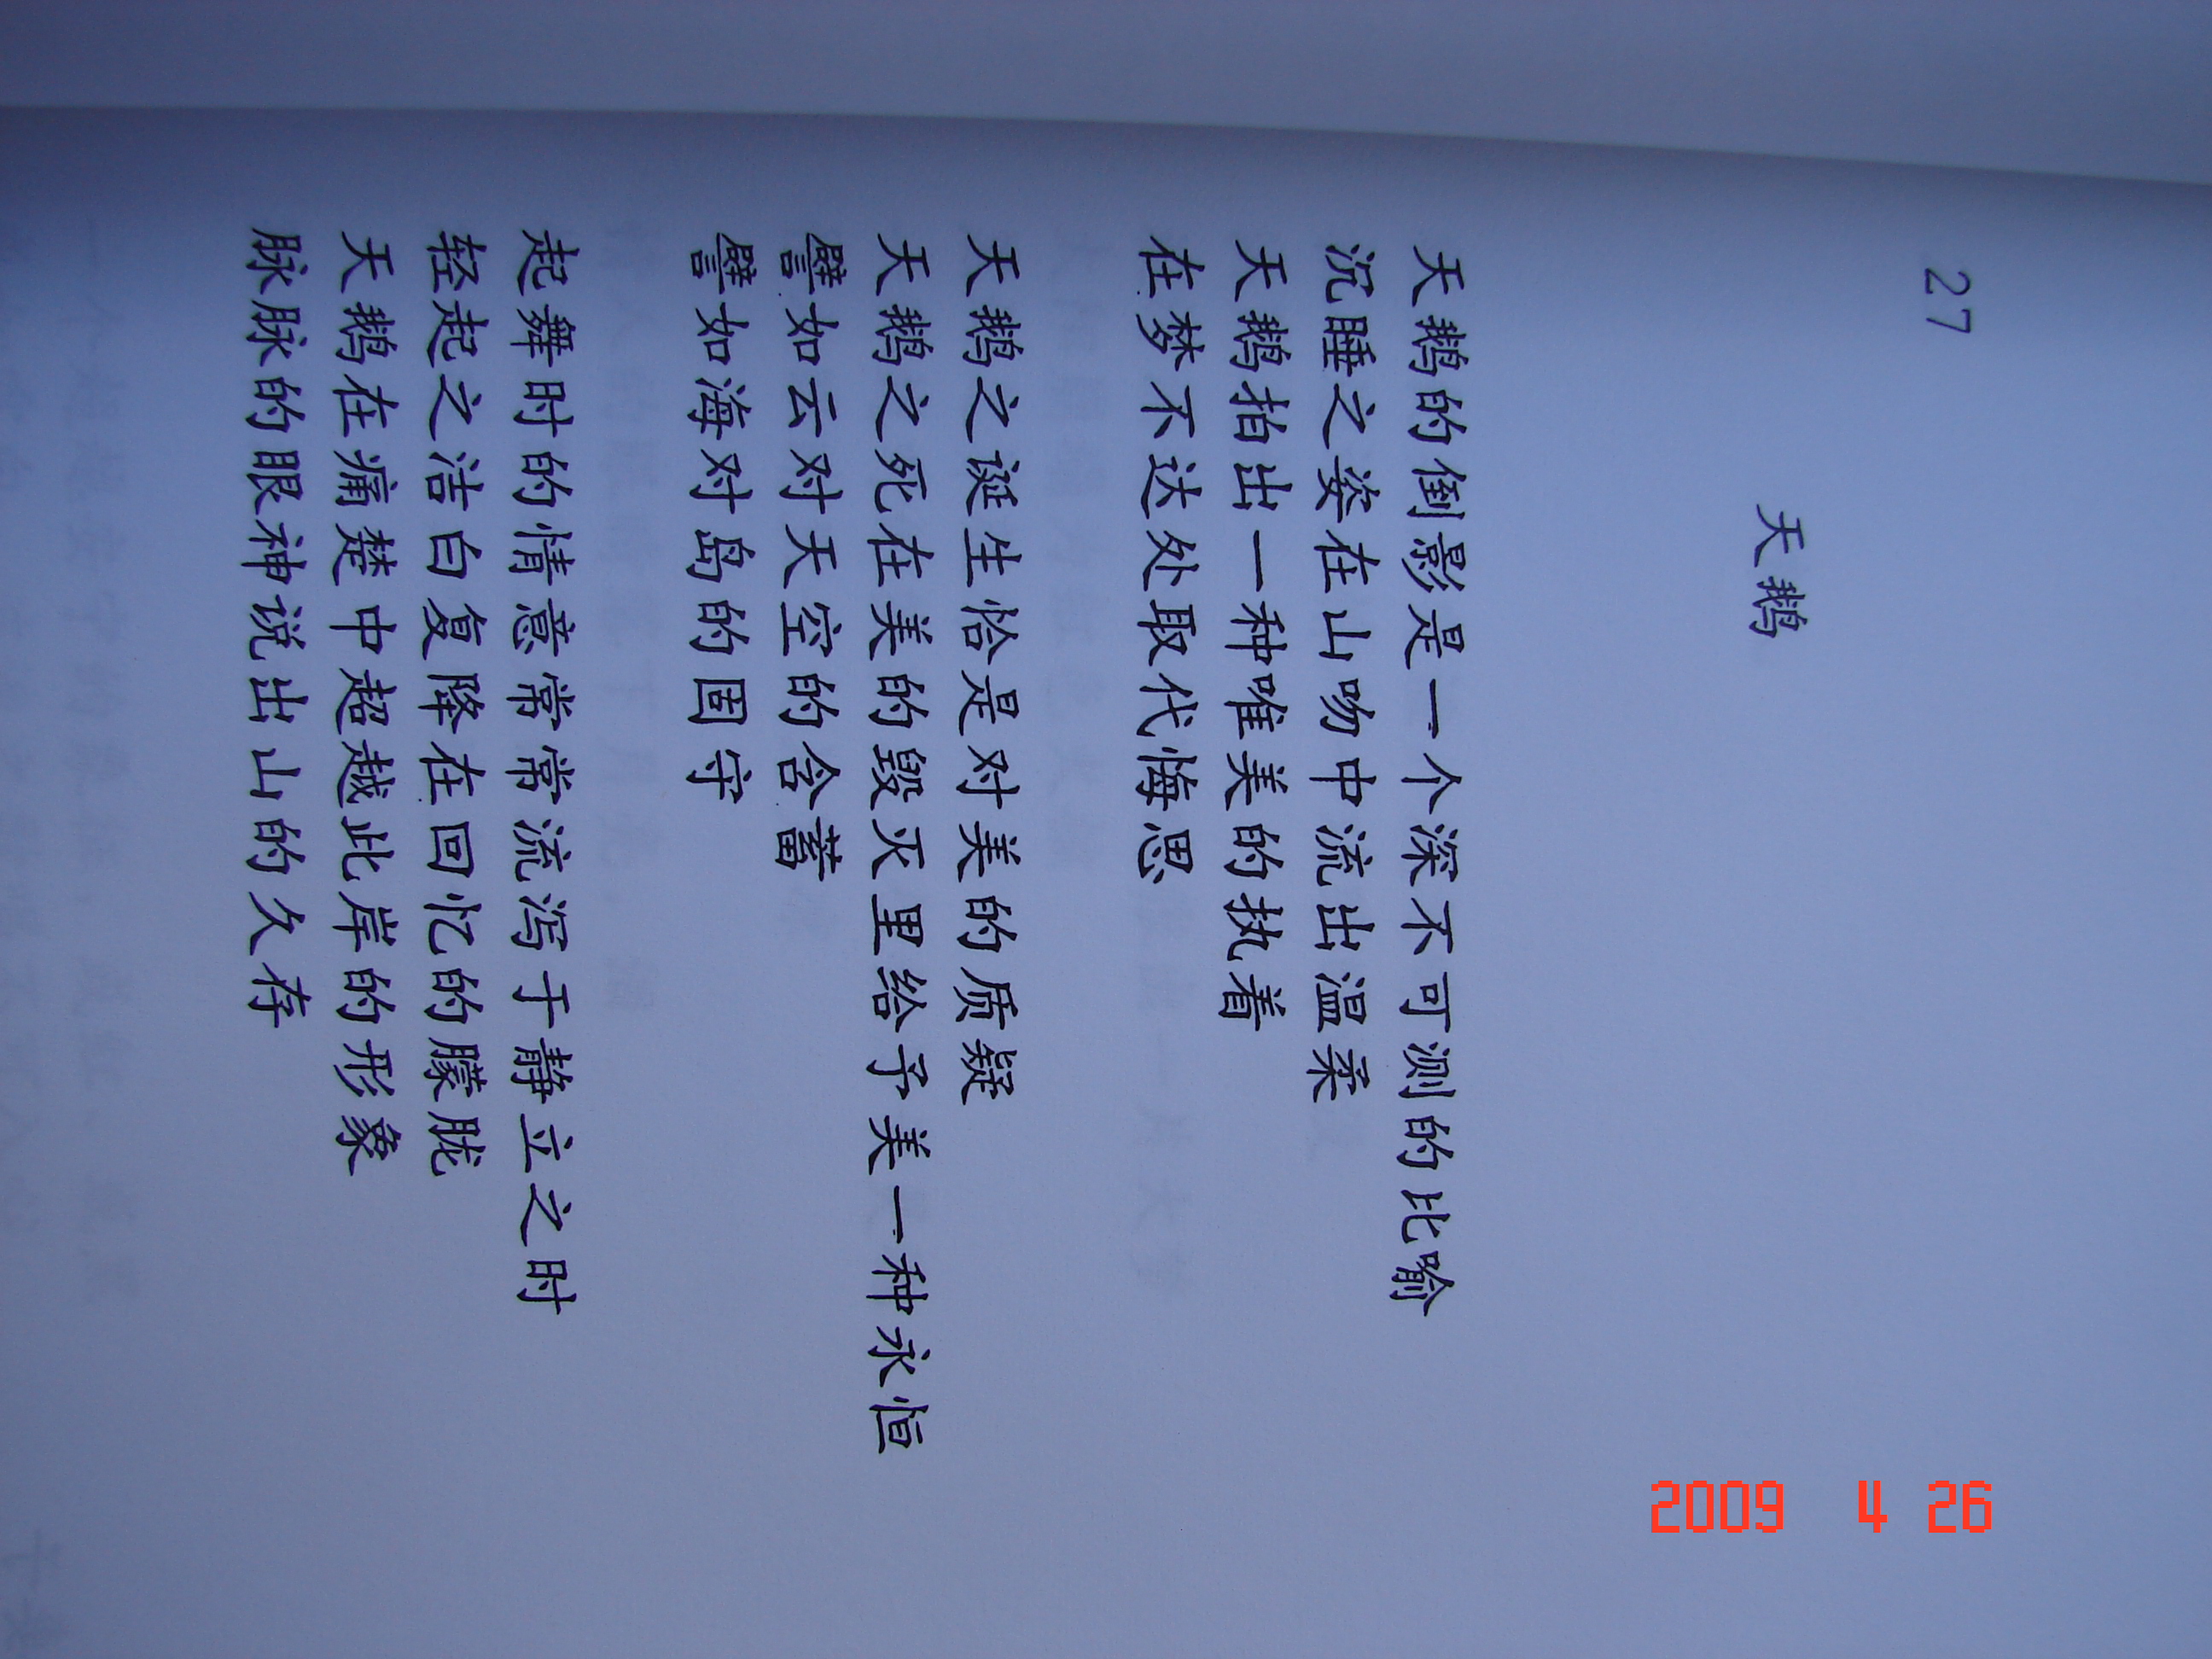 27
天鹅
天鹅的倒影是一个深不可测的比喻
沉睡之姿在山吻中流出温柔
天鹅拍出一种唯美的执着
在梦不达处取代悔思
天鹅之诞生恰是对美的质疑
天鹅之死在美的毁灭里给予美一种永恒
譬如云对天空的含蓄
譬如海对岛的固守
起舞时的情意常常流泻于静立之时
轻起之洁白复降在回忆的朦胧
天鹅在痛楚中超越此岸的形象
脉脉的眼神说出山的久存
2009 4 26